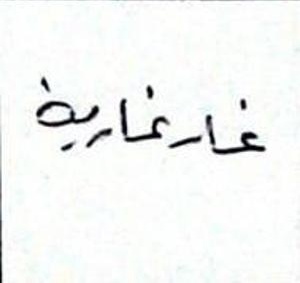 غار غارية